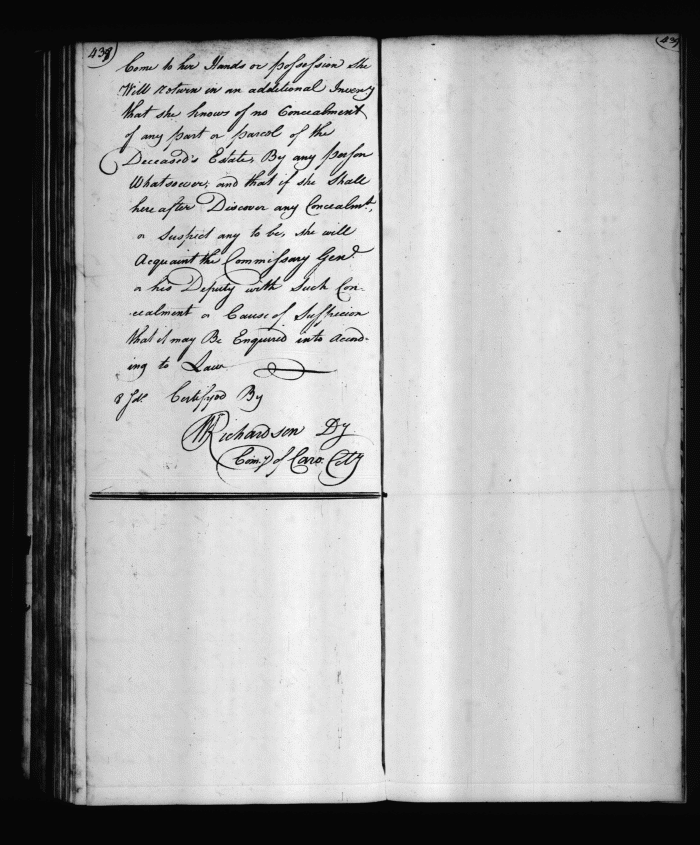 438
Come to her Hands or possession she
Will return in an additional Inventy
that she knows of no Concealment
of any part or parcel of the
Deceased's Estate, By any person
Whatsoever, and that if she shall
hereafter Discover any Concealmt.
or suspect any to be, she will
Acquaint the Commissary Genl.
or his Deputy with such Con-
cealment or Cause of Suspicion
that it may Be Enquired into Accord-
ing to Law
Certifyed By
Wm Richardson Dy
Comy. of Caro. Coty
439